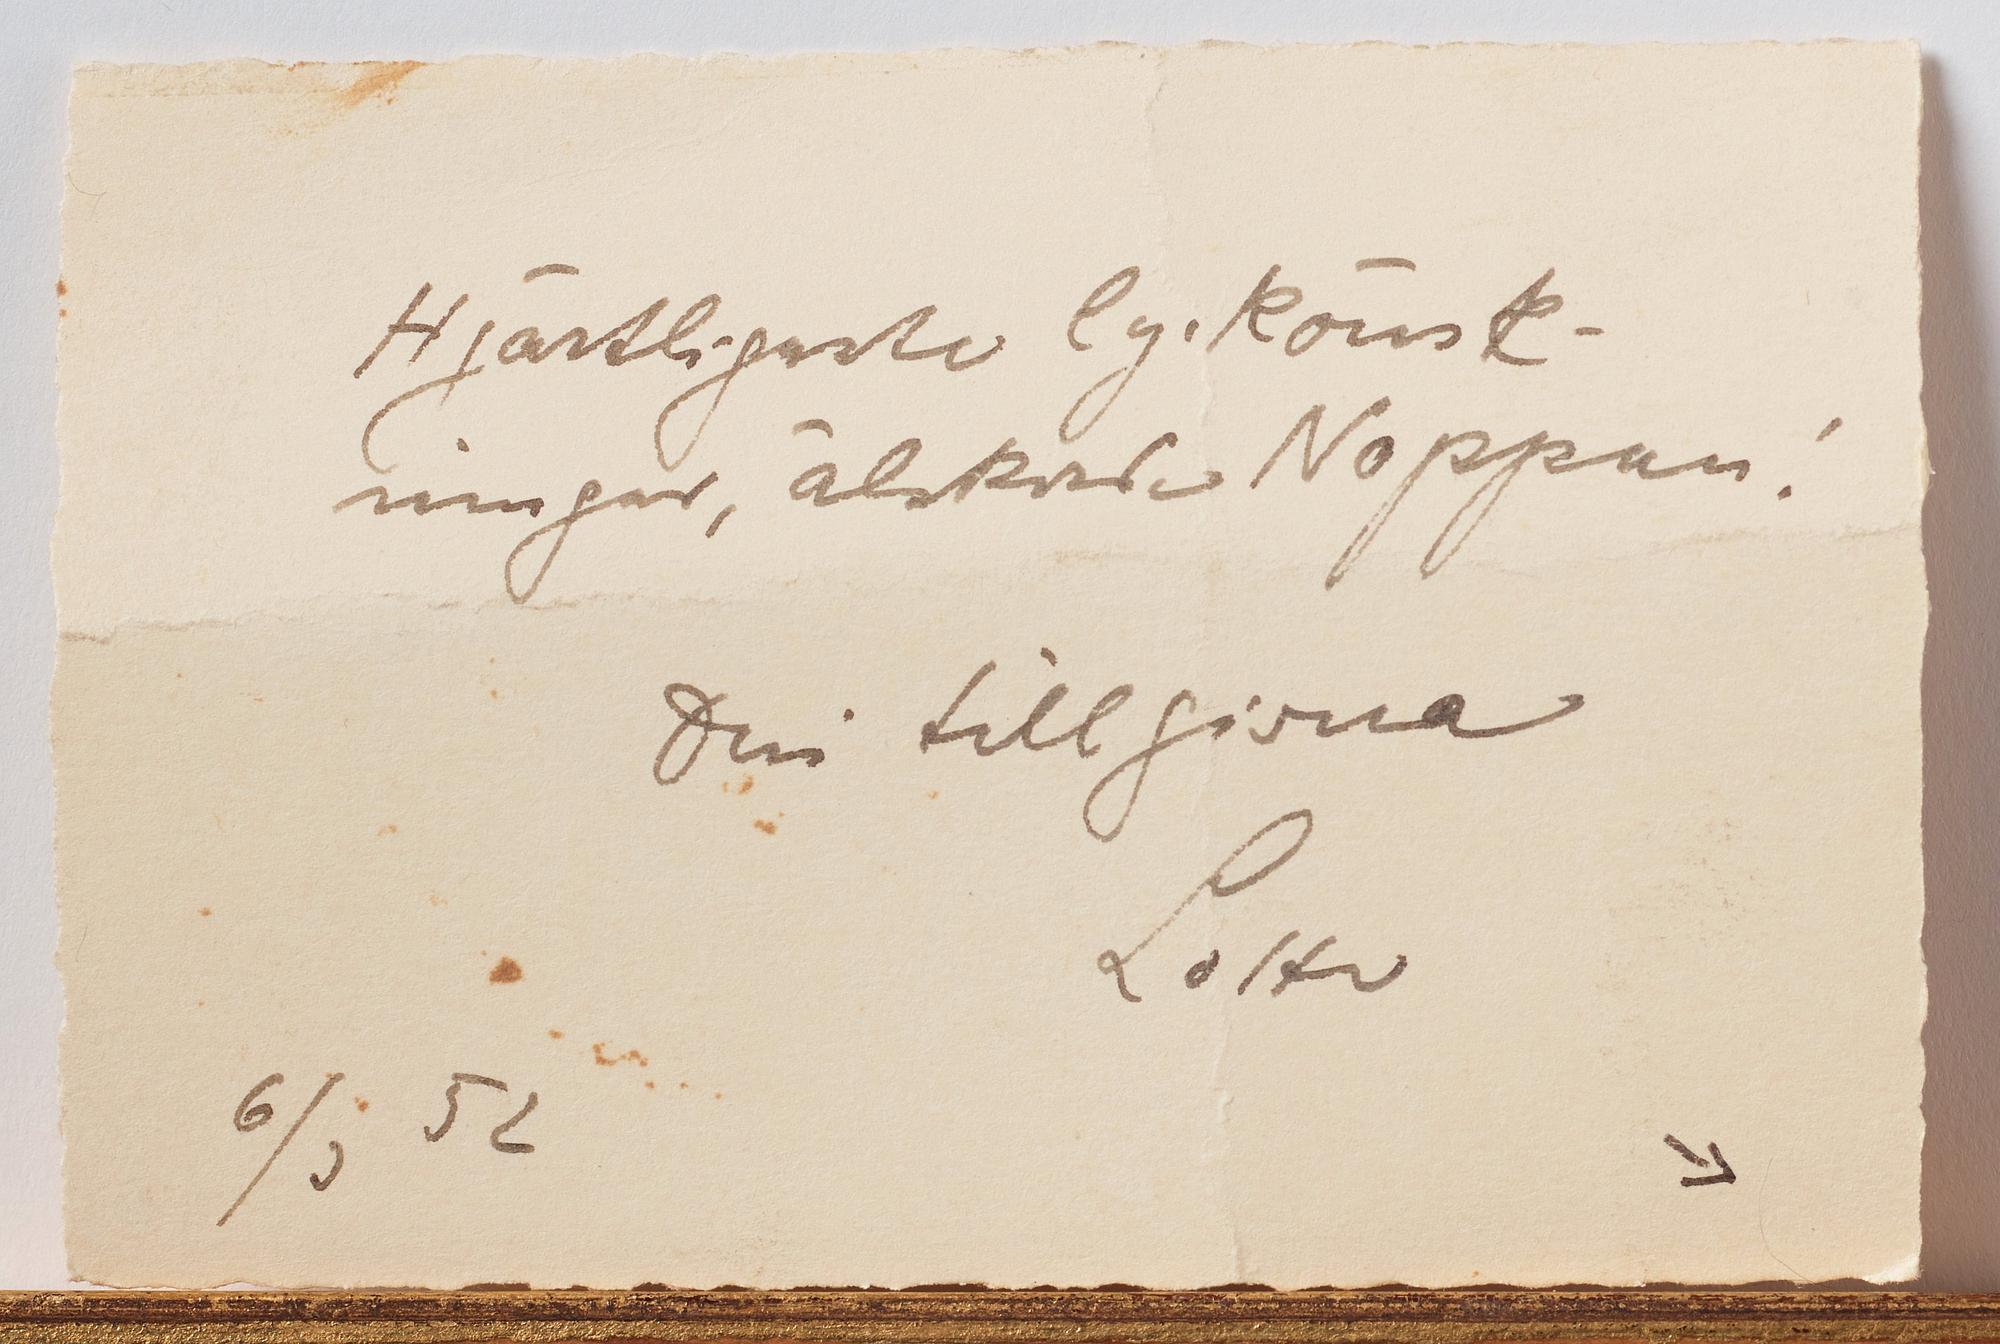 Hjärtligaste lyckönsk-
ningar, älskade Noppan!
Din tillgivna
Lotte
6/3 52